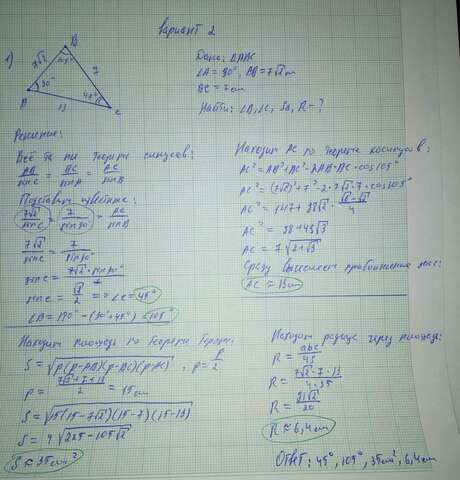 Вариант 2
1)
B
7√2
105°
7
A
30°
45°
C
13
Дано: △ABC
∠A = 30°, AB = 7√2 см
BC = 7 см
Найти: ∠B, ∠C, S△, R - ?
Решение:
по теореме синусов:
AB/sin C = BC/sin A = AC/sin B
Подставим известные:
7√2/sin C = 7/sin 30° = AC/sin B
7√2/sin C = 7/sin 30°
sin C = 7√2 · sin 30°/7
sin C = √2/2 => ∠C = 45°
∠B = 180° - (30° + 45°) = 105°
Находим AC по теореме косинусов:
AC² = AB² + BC² - 2AB · BC · cos 105°
AC² = (7√2)² + 7² - 2 · 7√2 · 7 · cos 105°
AC = 7√2+√3
Сразу вычисляем приближённое
AC ≈ 13 см
Находим площадь по теореме Герона:
S = √p(p-AB)(p-BC)(p-AC), p =
p = 7√2 + 7 + 13/2 = 15 см
S = √15(15 - 7√2)(15 - 7)(15 - 13)
S = 4√225 - 105√2
S ≈ 35 см²
Находим радиус через площадь:
R = abc/4S
R = 7√2 · 7 · 13/4 · 35
R = 91√2/20
R ≈ 6,4 см
Ответ: 45°, 105°, 35 см², 6,4 см